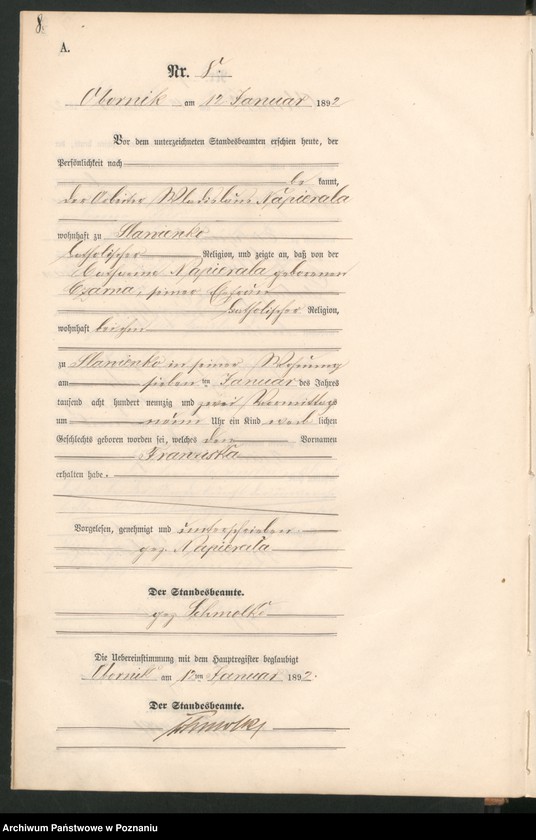 8.
A.
Nr. 8.
Obornik am 12 Januar 1892
Vor dem unterzeichneten Standesbeamten erschien heute, der
Persönlichkeit nach
be kannt,
der Arbeiter Wladislaus Napierala
wohnhaft zu Slawienko
katholischer Religion, und zeigte an, daß von der
Napierala geborenen
Czarna, seiner Ehefrau
katholischer Religion,
wohnhaft bei ihm
zu Slawienko in seiner Wohnung
am sieben ten Januar des Jahres
tausend acht hundert neunzig und zwei Vormittags
um neun Uhr ein Kind weib lichen
Geschlechts geboren worden sei, welches den Vornamen
Franziska
erhalten habe.
Vorgelesen, genehmigt und unterschrieben
gez. Napierala
Der Standesbeamte.
gez Schmolke
Die Uebereinstimmung mit dem Hauptregister beglaubigt
Obornik am 12ten Januar 1892.
Der Standesbeamte.
Schmolke
Archiwum Państwowe w Poznaniu